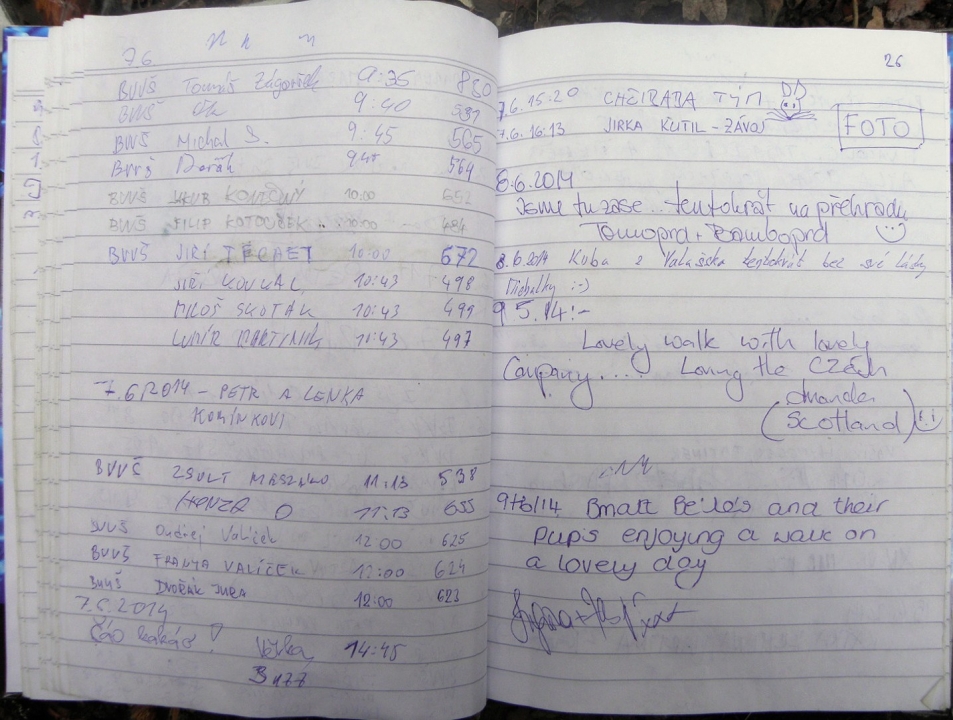 7.6.
BVVŠ Tomáš Zágoršek 9:35 830
BVVŠ 9:40 531
BVVŠ Michal S. 9:45 565
BVVŠ Dořák 9:45 564
BVVŠ JAKUB KONEČNÝ 10:00 652
BVVŠ FILIP KOTOUČEK 10:00 484
BVVŠ JIŘÍ 10:00 672
JIŘÍ KOUKAL 10:43 498
MILOŠ SKOTÁK 10:43 499
LUMÍR MARTINÍK 10:43 497
7.6/2014 - PETR A LENKA
KOMÍNKOVI
BVVŠ ZSOLT 11:13 538
HONZA O 11:13 655
BVVŠ Ondřej Valíček 12:00 625
BVVŠ FRANTA VALÍČEK 12:00 624
BVVŠ DVOŘÁK JURA 12:00 623
7.6.2014
Čáo kakáo! 14:45
Buzz
26
7.6. 15:20 TÝM
7.6. 16:13 JIRKA KUTIL - ZÁVOJ
FOTO
8.6.2014
Jsme tu zase... tentokrát na přehradu
8.6 2014 Kuba z Valašska tentokrát bez své lásky
Michalky :-)
9 5.14:-
Lovely walk with lovely
Company..... Loving the CZECH
Amanda
(Scotland)
9/6/14 Bmatt Beildos and their
pups enjoying a walk on
a lovely day